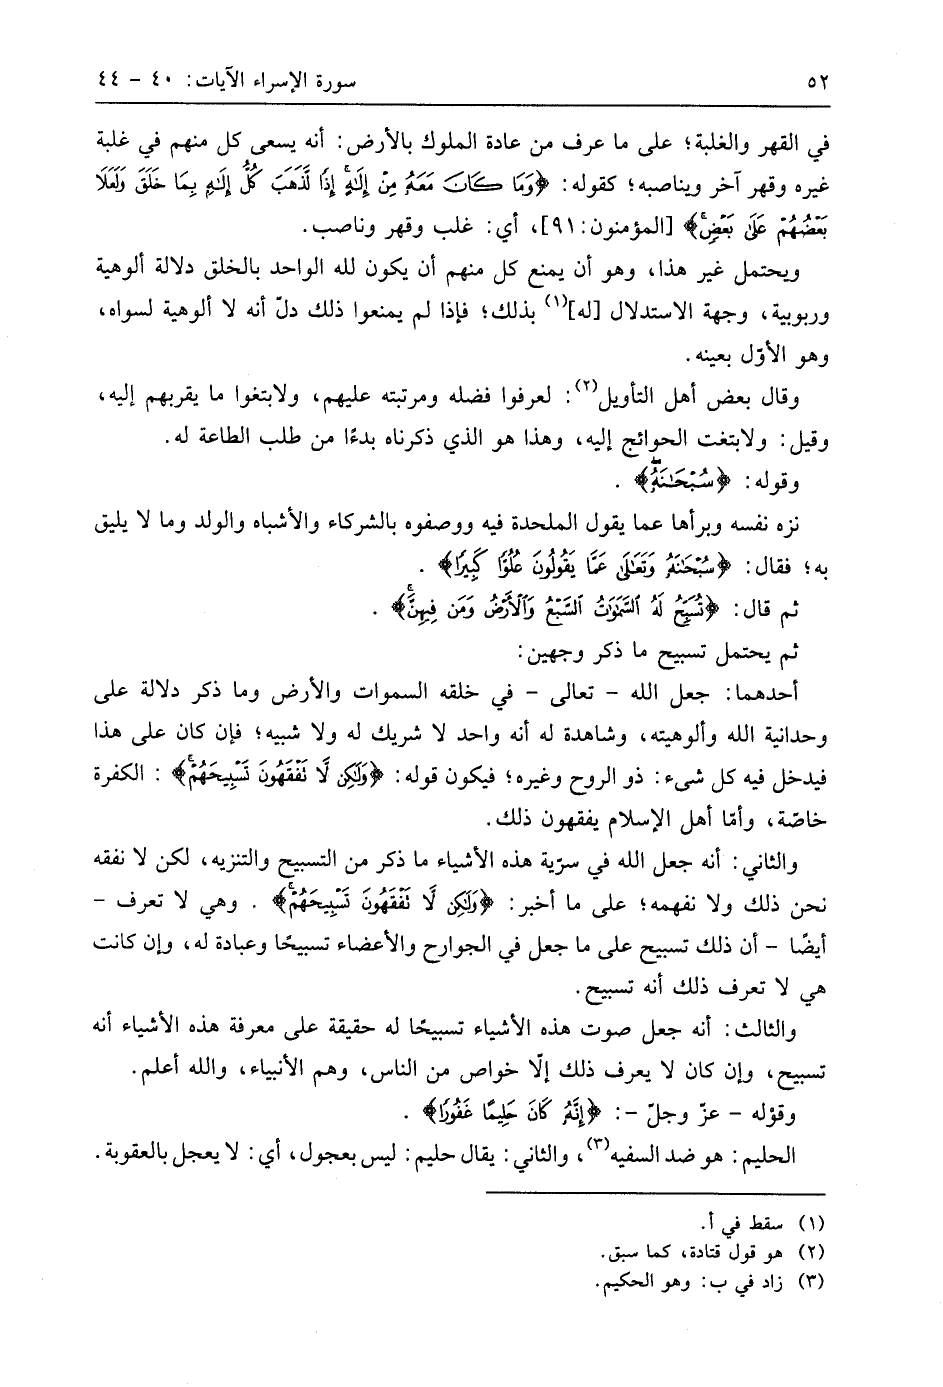 ٥٢ سورة الإسراء الآيات: ٤٠ - ٤٤
في القهر والغلبة؛ على ما عرف من عادة الملوك بالأرض: أنه يسعى كل منهم في غلبة
غيره وقهر آخر ويناصبه؛ كقوله: ﴿وَمَا كَانَ مَعَهُ مِنْ إِلَٰهٍ إِذًا لَّذَهَبَ كُلُّ إِلَٰهٍ بِمَا خَلَقَ وَلَعَلَا
بَعْضُهُمْ عَلَىٰ بَعْضٍ﴾ [المؤمنون:٩١]، أي: غلب وقهر وناصب.
ويحتمل غير هذا، وهو أن يمنع كل منهم أن يكون لله الواحد بالخلق دلالة ألوهية
وربوبية، وجهة الاستدلال [له](١) بذلك؛ فإذا لم يمنعوا ذلك دلّ أنه لا ألوهية لسواه،
وهو الأوّل بعينه.
وقال بعض أهل التأويل(٢): لعرفوا فضله ومرتبته عليهم، ولابتغوا ما يقربهم إليه،
وقيل: ولابتغت الحوائج إليه، وهذا هو الذي ذكرناه بدءًا من طلب الطاعة له.
وقوله: ﴿سُبْحَٰنَهُۥ﴾ .
نزه نفسه وبرأها عما يقول الملحدة فيه ووصفوه بالشركاء والأشباه والولد وما لا يليق
به؛ فقال: ﴿سُبْحَٰنَهُۥ وَتَعَٰلَىٰ عَمَّا يَقُولُونَ عُلُوًّا كَبِيرًا﴾ .
ثم قال: ﴿تُسَبِّحُ لَهُ ٱلسَّمَٰوَٰتُ ٱلسَّبْعُ وَٱلْأَرْضُ وَمَن فِيهِنَّ﴾ .
ثم يحتمل تسبيح ما ذكر وجهين:
أحدهما: جعل الله - تعالى - في خلقه السموات والأرض وما ذكر دلالة على
وحدانية الله وألوهيته، وشاهدة له أنه واحد لا شريك له ولا شبيه؛ فإن كان على هذا
فيدخل فيه كل شىء: ذو الروح وغيره؛ فيكون قوله: ﴿وَلَٰكِن لَّا تَفْقَهُونَ تَسْبِيحَهُمْ﴾ : الكفرة
خاصّة، وأمّا أهل الإسلام يفقهون ذلك.
والثاني: أنه جعل الله في سرّية هذه الأشياء ما ذكر من التسبيح والتنزيه، لكن لا نفقه
نحن ذلك ولا نفهمه؛ على ما أخبر: ﴿وَلَٰكِن لَّا تَفْقَهُونَ تَسْبِيحَهُمْ﴾ . وهي لا تعرف -
أيضًا - أن ذلك تسبيح على ما جعل في الجوارح والأعضاء تسبيحًا وعبادة له، وإن كانت
هي لا تعرف ذلك أنه تسبيح.
والثالث: أنه جعل صوت هذه الأشياء تسبيحًا له حقيقة على معرفة هذه الأشياء أنه
تسبيح، وإن كان لا يعرف ذلك إلّا خواص من الناس، وهم الأنبياء، والله أعلم.
وقؤله - عزّ وجلّ -: ﴿إِنَّهُۥ كَانَ حَلِيمًا غَفُورًا﴾ .
الحليم: هو ضد السفيه(٣)، والثاني: يقال حليم: ليس بعجول، أي: لا يعجل بالعقوبة.
(١) سقط في أ.
(٢) هو قول قتادة، كما سبق.
(٣) زاد في ب: وهو الحكيم.